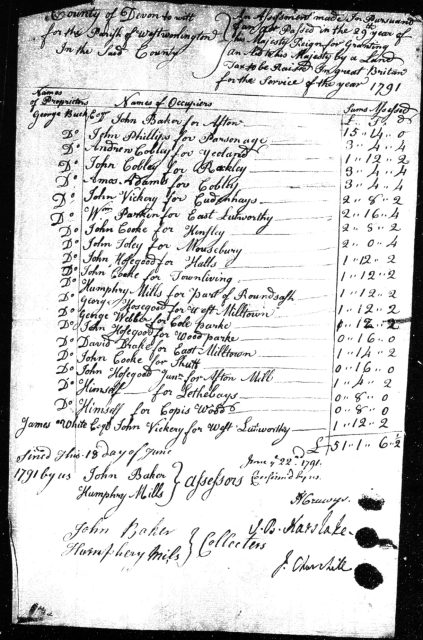 County of Devon to wit
for the Parish of Westworlington
In the Said County
An Assessment made In Pursuance
Act Passed in the 29 year of
his Majesty Reign for Granting
an Aid to his Majesty by a Land
Tax to be Raised In great Britan
for the Service of the year 1791
Names of Proprietors Names of Occupiers Sums Assessed
£ S d
George Buck Esqr John Baker for Afton 15 14 0
Do John Phillips for Parsonage 3 4 4
Do Andrew Cobley for Yeoland 1 12 2
Do John Cobley for Rockley 3 4 4
Do Amos Adams for Cobley 3 4 4
Do John Vickery for Cudenhays 2 8 2
Do Wm Parken for East Lutworthy 2 16 4
Do John Cooke for Hensley 2 8 2
Do John Foley for Mousebury 2 0 4
Do John Hosegood for Halls 1 12 2
Do John Cooke for Townliving 1 12 2
Do Humphry Mills for Part of Roundsash 1 12 2
Do George Hosegood for West Milltown 1 12 2
Do George Webber for Cole parke 1 12 2
Do John Hosegood for Wood parke 0 16 0
Do David Brake for East Milltown 1 14 2
Do John Cooke for Shutt 0 16 0
Do John Hosegood Junr for Afton Mill 1 4 2
Do Himself for Lethebays 0 8 0
Do Himself for Copis Wood 0 8 0
James White Esqr John Vickery for West Lutworthy 1 12 2
£ 51 1 6 1/2
Sined This 18 day of June
1791 by us John Baker
Humphry Mills
Assessors
June ye 22nd 1791
Confirmed by us
John Baker
Humphery Mils
Collecters
J. Churchill